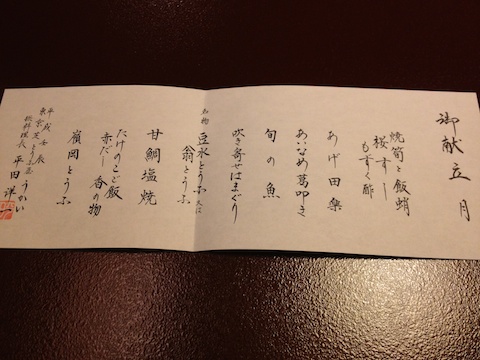 御献立 月
焼筍と飯蛸
桜すし
もずく酢
あげ田楽
あいなめ葛叩き
旬の魚
吹き寄せはまぐり
お物 豆水とうふ 又は
翁とうふ
甘鯛塩焼
たけのこご飯
赤だし 香の物
嶺岡とうふ
平成 壬辰
東京芝 とうふ屋うかい
総料理長 平田 祥一